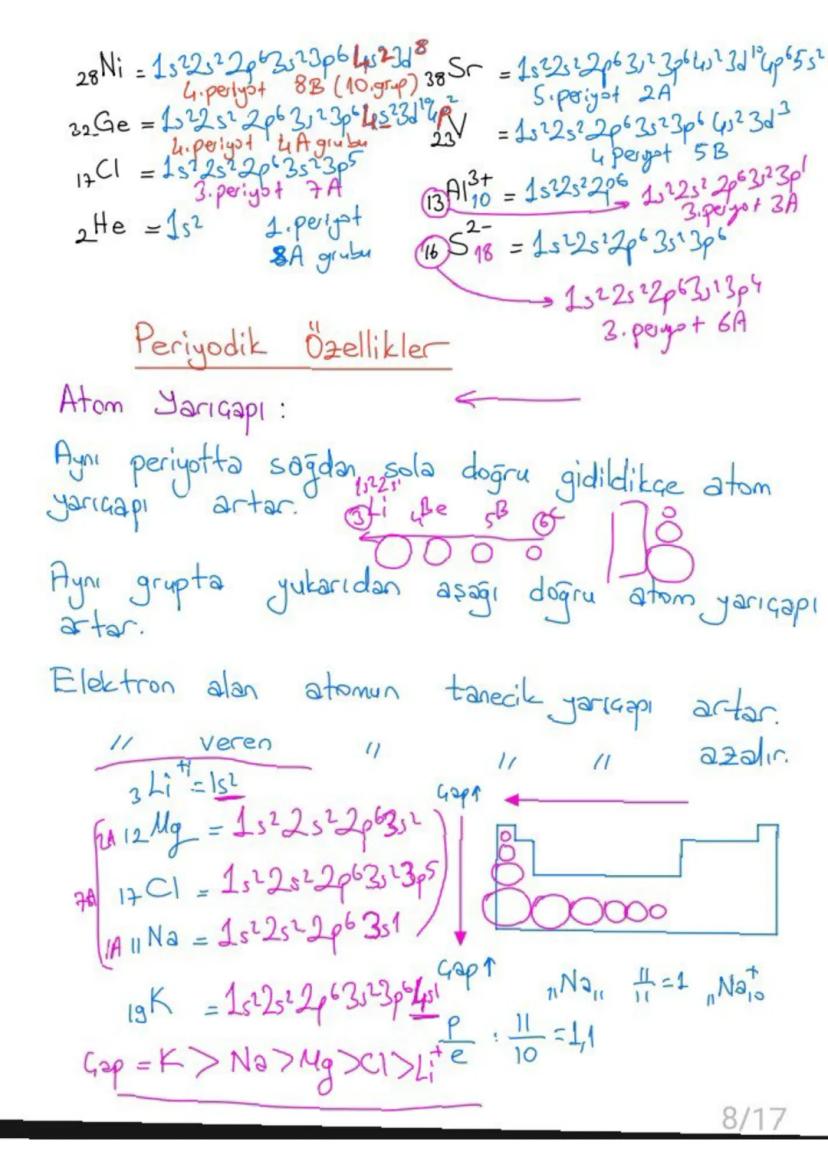 ₂₈Ni = 1s²2s²2p⁶3s²3p⁶4s²3d⁸
4.periyot 8B (10.grup)
₃₂Ge = 1s²2s²2p⁶3s²3p⁶4s²3d¹⁰4p²
4.periyot 4A grubu
₁₇Cl = 1s²2s²2p⁶3s²3p⁵
3.periyot 7A
₂He = 1s² 1.periyot
8A grubu
₃₈Sr = 1s²2s²2p⁶3s²3p⁶4s²3d¹⁰4p⁶5s²
5.periyot 2A
₂₃V = 1s²2s²2p⁶3s²3p⁶4s²3d³
4 Periyot 5B
₁₃Al³⁺₁₀ = 1s²2s²2p⁶ 1s²2s²2p⁶3s²3p¹
3.periyot 3A
₁₆S²⁻₁₈ = 1s²2s²2p⁶3s²3p⁶
1s²2s²2p⁶3s²3p⁴
3.periyot 6A
Periyodik Özellikler
Atom Yarıçapı :
Aynı periyotta sağdan sola doğru gidildikçe atom
yarıçapı artar.
1s²2s¹
₃Li ₄Be ₅B ₆C
Aynı grupta yukarıdan aşağı doğru atom yarıçapı
artar.
Elektron alan atomun tanecik yarıçapı artar.
// veren // // // azalır.
₃Li⁺¹ = 1s²
2A ₁₂Mg = 1s²2s²2p⁶3s²
7A ₁₇Cl = 1s²2s²2p⁶3s²3p⁵
1A ₁₁Na = 1s²2s²2p⁶3s1
₁₉K = 1s²2s²2p⁶3s²3p⁶4s¹
Çap = K > Na > Mg > Cl > Li⁺
Çap↑
Çap↑
₁₁Na₁₁ 11/11 = 1 ₁₁Na⁺₁₀
P/e : 11/10 = 1,1
8/17